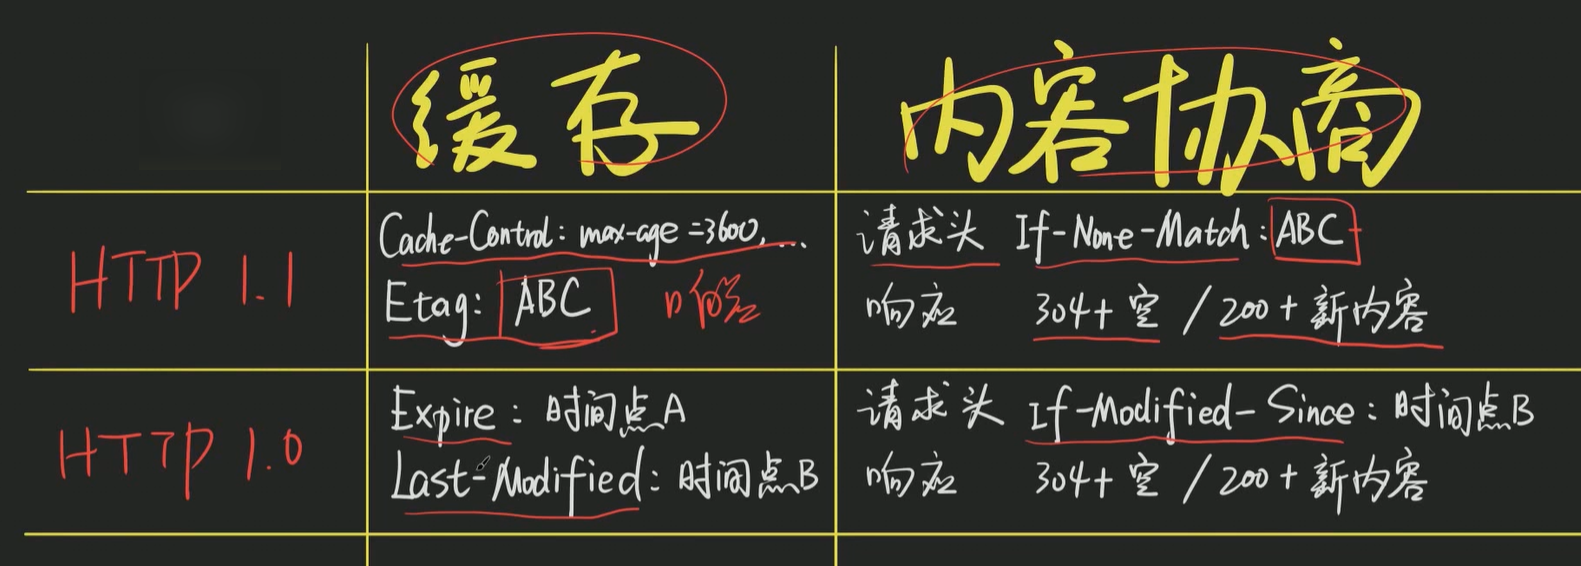 缓存 内容协商
HTTP 1.1
Cache-Control: max-age=3600, ...
Etag: ABC 响应
请求头 If-None-Match: ABC
响应 304+空 / 200+新内容
HTTP 1.0
Expire: 时间点A
Last-Modified: 时间点B
请求头 If-Modified-Since: 时间点B
响应 304+空 / 200+新内容